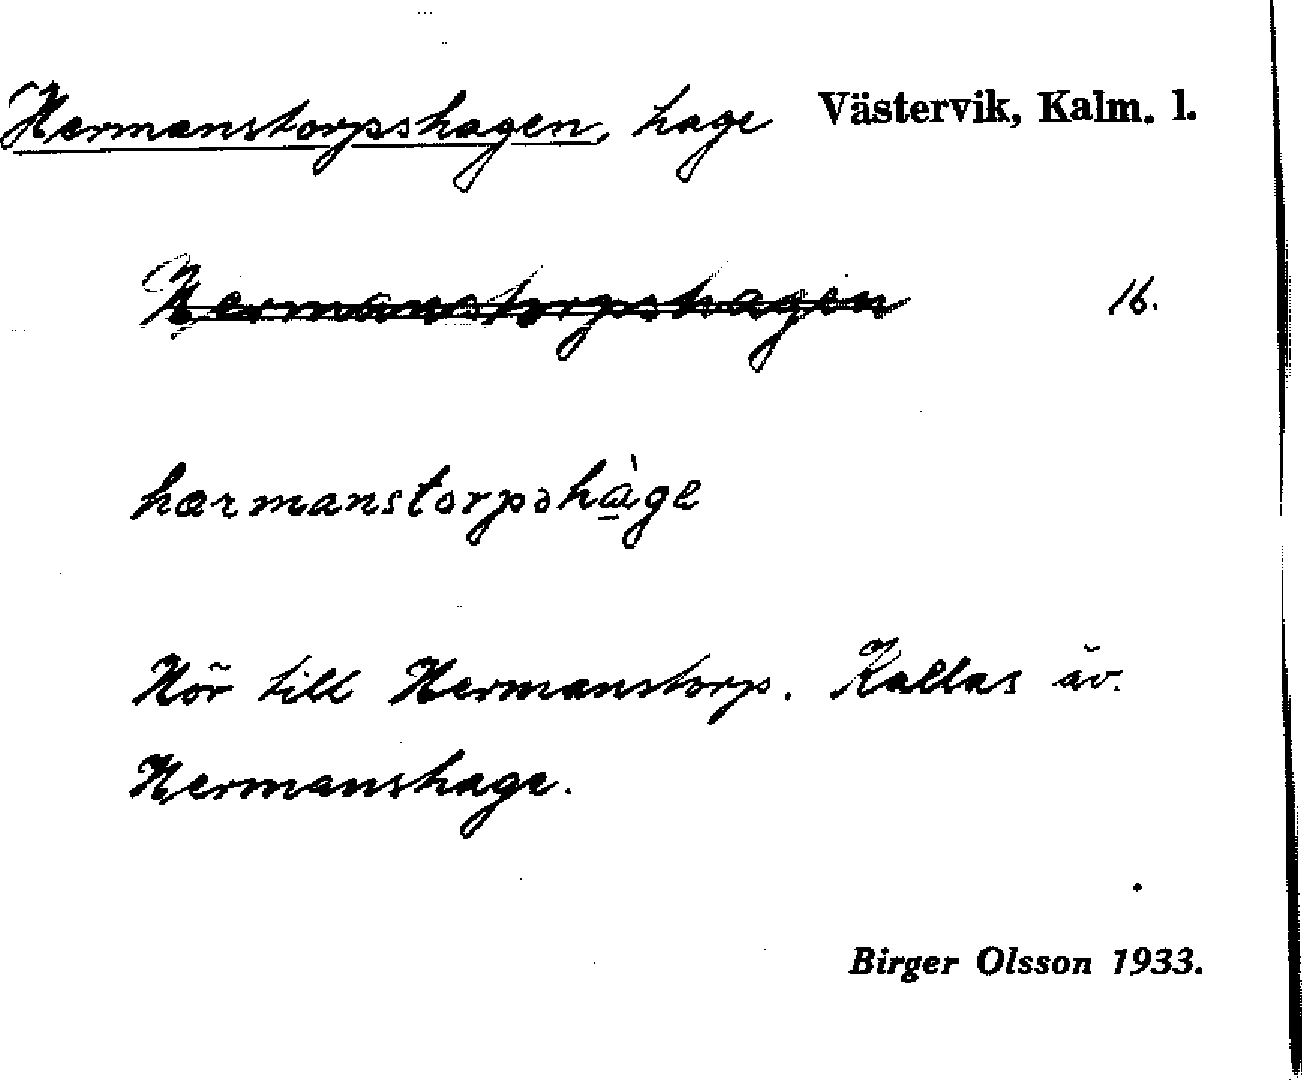 Hermanstorpshagen, hage Västervik, Kalm. l.
Hermanstorpshagen 16.
hærmanstorpshàge
Hör till Hermanstorp. Kallas äv.
Hermanshage.
Birger Olsson 1933.